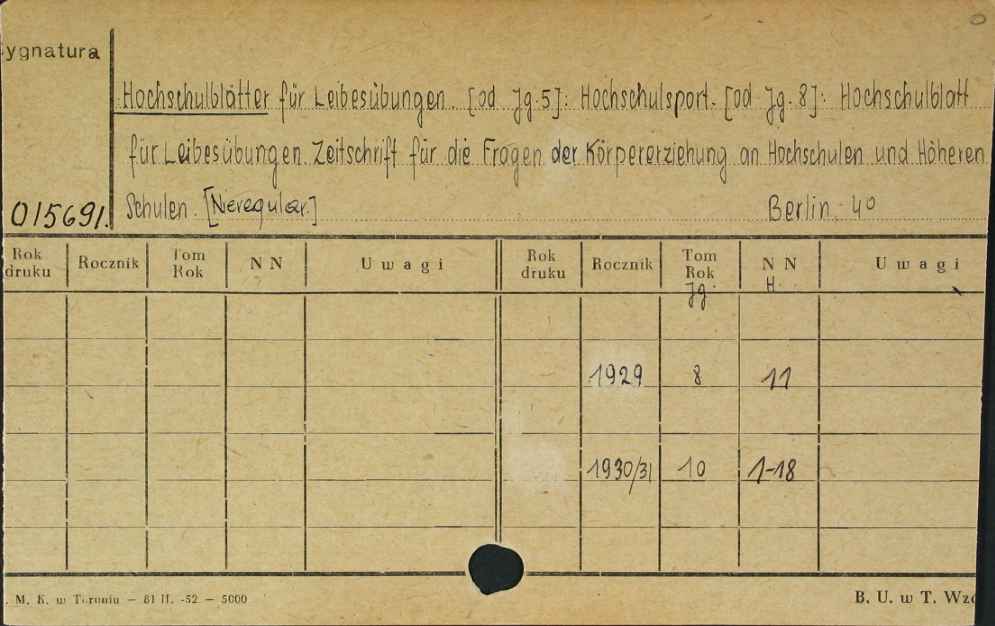 ygnatura
Hochschulblätter für Leibesübungen. [od Jg. 5]: Hochschulsport. [od Jg. 8]: Hochschulblatt
für Leibesübungen. Zeitschrift für die Fragen der Körpererziehung an Hochschulen und Höheren
015691. Schulen. [Nieregular.] Berlin. 4º
Rok druku Rocznik Tom Rok N N U w a g i Rok druku Rocznik Tom Rok N N U w a g i
Jg. H.
1929 8 11
1930/31 10 1-18
. M. K. w Toruniu — 81 II. -52 — 5000 B. U. w T. Wzó